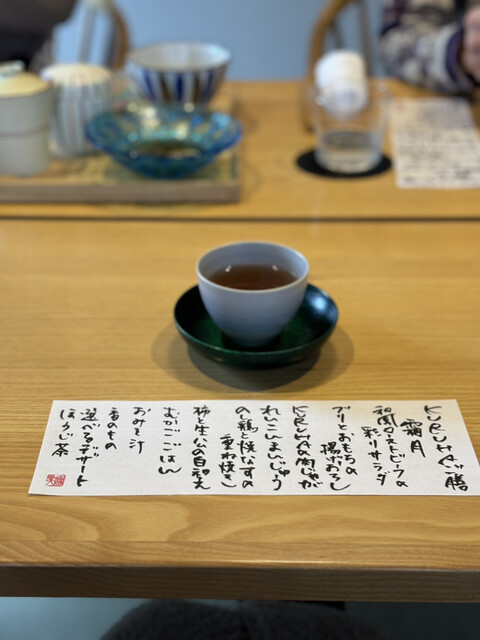 KURUHAご膳
霜月
和風ローストビーフの
彩りサラダ
ブリとおもちの
揚げおろし
KURUHAの肉じゃが
れんこんまんじゅう
のし鶏と焼なすの
重ね焼き
柿と生公の白和え
むかごごはん
おみそ汁
香のもの
選べるデザート
ほうじ茶